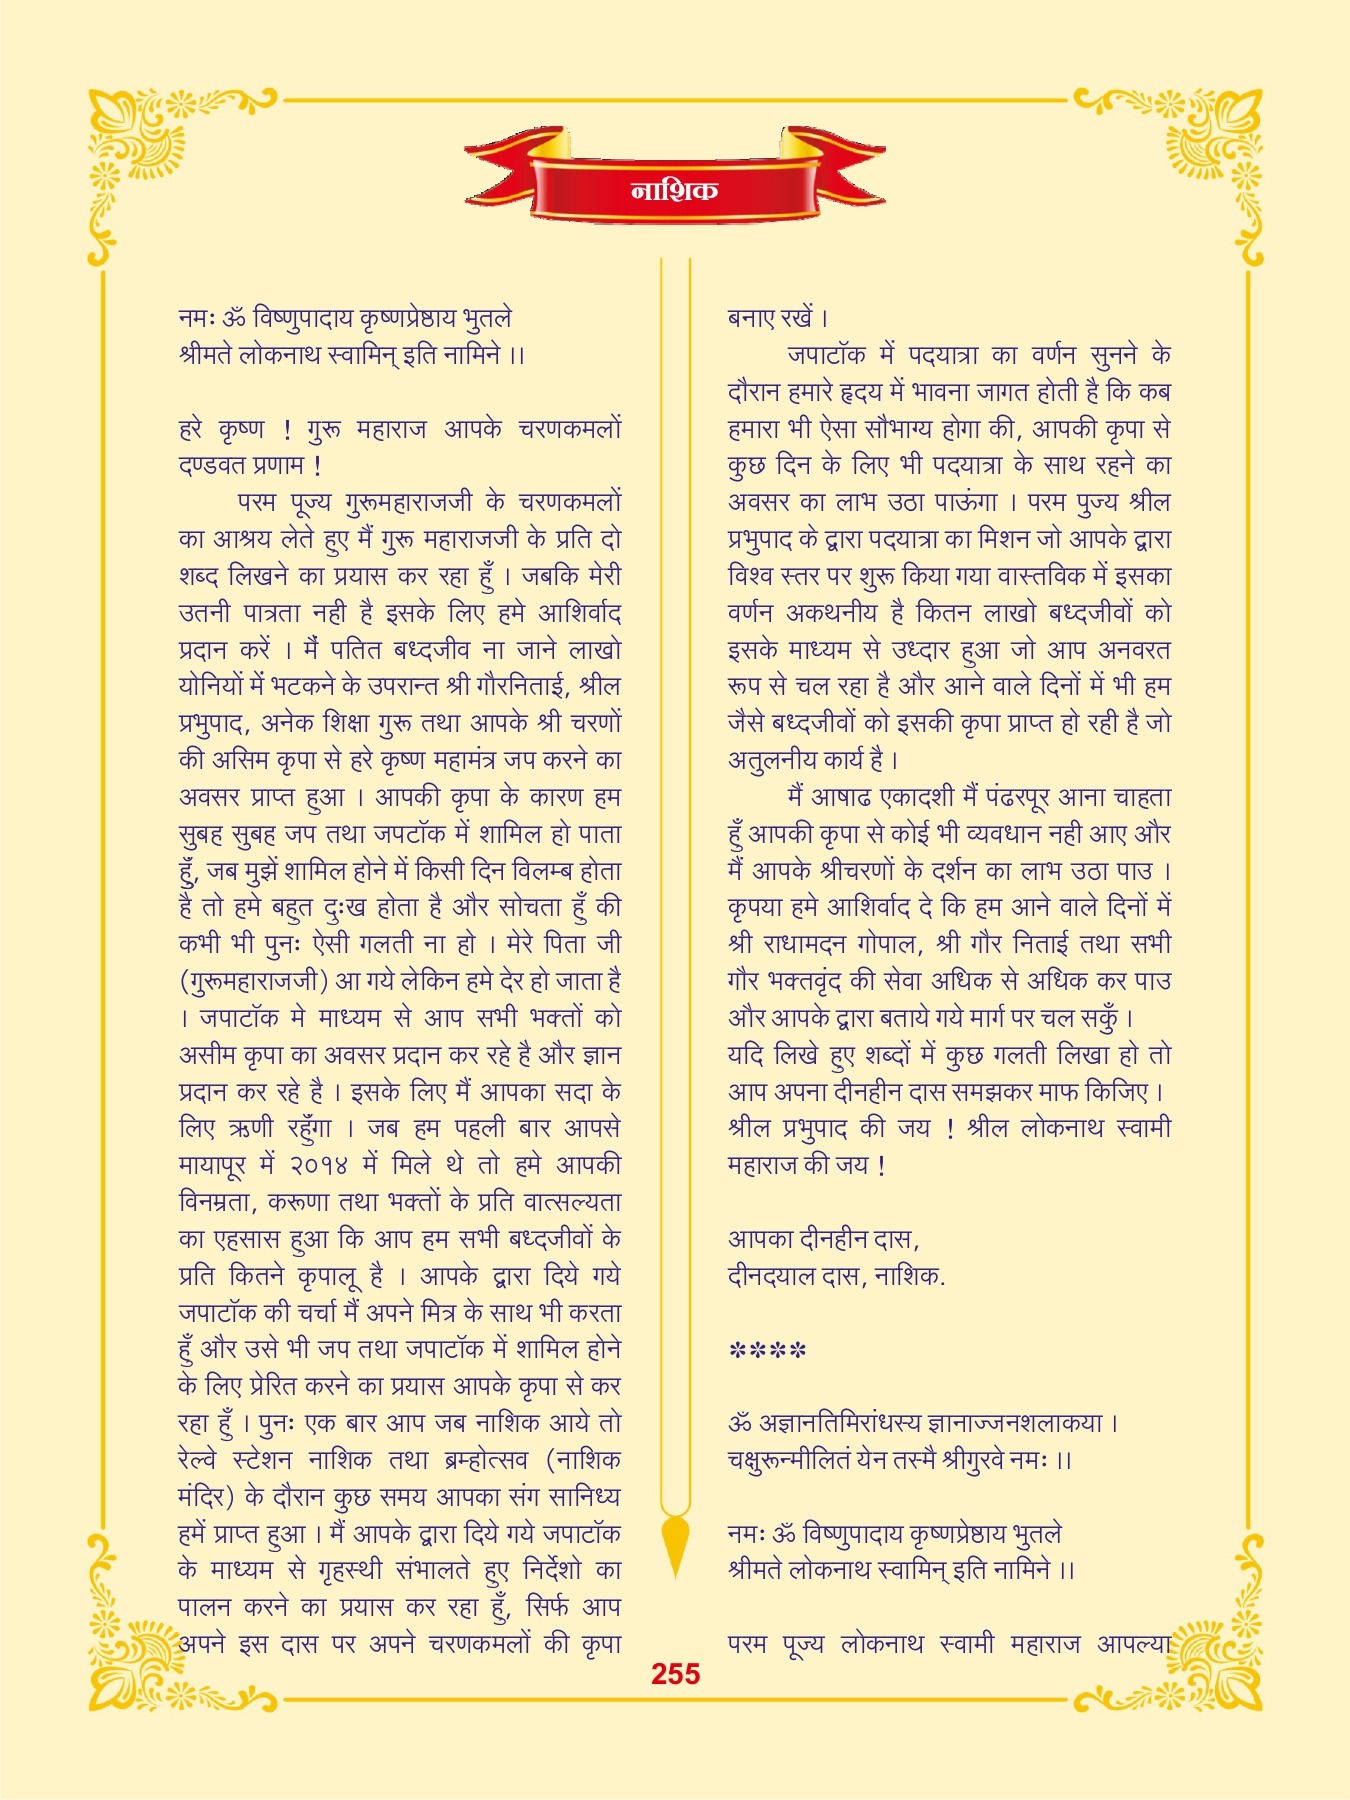 नाशिक
नमः ॐ विष्णुपादाय कृष्णप्रेष्ठाय भुतले
श्रीमते लोकनाथ स्वामिन् इति नामिने ।।
हरे कृष्ण ! गुरू महाराज आपके चरणकमलों
दण्डवत प्रणाम !
परम पूज्य गुरूमहाराजजी के चरणकमलों
का आश्रय लेते हुए मैं गुरू महाराजजी के प्रति दो
शब्द लिखने का प्रयास कर रहा हूँ । जबकि मेरी
उतनी पात्रता नही है इसके लिए हमे आशिर्वाद
प्रदान करें । मैं पतित बध्दजीव ना जाने लाखो
योनियों में भटकने के उपरान्त श्री गौरनिताई, श्रील
प्रभुपाद, अनेक शिक्षा गुरू तथा आपके श्री चरणों
की असिम कृपा से हरे कृष्ण महामंत्र जप करने का
अवसर प्राप्त हुआ । आपकी कृपा के कारण हम
सुबह सुबह जप तथा जपटॉक में शामिल हो पाता
हूँ, जब मुझें शामिल होने में किसी दिन विलम्ब होता
है तो हमे बहुत दुःख होता है और सोचता हूँ की
कभी भी पुनः ऐसी गलती ना हो । मेरे पिता जी
(गुरूमहाराजजी) आ गये लेकिन हमे देर हो जाता है
। जपाटॉक मे माध्यम से आप सभी भक्तों को
असीम कृपा का अवसर प्रदान कर रहे है और ज्ञान
प्रदान कर रहे है । इसके लिए मैं आपका सदा के
लिए ऋणी रहूँगा । जब हम पहली बार आपसे
मायापूर में २०१४ में मिले थे तो हमे आपकी
विनम्रता, करूणा तथा भक्तों के प्रति वात्सल्यता
का एहसास हुआ कि आप हम सभी बध्दजीवों के
प्रति कितने कृपालू है । आपके द्वारा दिये गये
जपाटॉक की चर्चा मैं अपने मित्र के साथ भी करता
हूँ और उसे भी जप तथा जपाटॉक में शामिल होने
के लिए प्रेरित करने का प्रयास आपके कृपा से कर
रहा हूँ । पुनः एक बार आप जब नाशिक आये तो
रेल्वे स्टेशन नाशिक तथा ब्रम्होत्सव (नाशिक
मंदिर) के दौरान कुछ समय आपका संग सानिध्य
हमें प्राप्त हुआ । मैं आपके द्वारा दिये गये जपाटॉक
के माध्यम से गृहस्थी संभालते हुए निर्देशो का
पालन करने का प्रयास कर रहा हूँ, सिर्फ आप
अपने इस दास पर अपने चरणकमलों की कृपा
बनाए रखें ।
जपाटॉक में पदयात्रा का वर्णन सुनने के
दौरान हमारे हृदय में भावना जागत होती है कि कब
हमारा भी ऐसा सौभाग्य होगा की, आपकी कृपा से
कुछ दिन के लिए भी पदयात्रा के साथ रहने का
अवसर का लाभ उठा पाऊंगा । परम पुज्य श्रील
प्रभुपाद के द्वारा पदयात्रा का मिशन जो आपके द्वारा
विश्व स्तर पर शुरू किया गया वास्तविक में इसका
वर्णन अकथनीय है कितन लाखो बध्दजीवों को
इसके माध्यम से उध्दार हुआ जो आप अनवरत
रूप से चल रहा है और आने वाले दिनों में भी हम
जैसे बध्दजीवों को इसकी कृपा प्राप्त हो रही है जो
अतुलनीय कार्य है ।
मैं आषाढ एकादशी मैं पंढरपूर आना चाहता
हूँ आपकी कृपा से कोई भी व्यवधान नही आए और
मैं आपके श्रीचरणों के दर्शन का लाभ उठा पाउ ।
कृपया हमे आशिर्वाद दे कि हम आने वाले दिनों में
श्री राधामदन गोपाल, श्री गौर निताई तथा सभी
गौर भक्तवृंद की सेवा अधिक से अधिक कर पाउ
और आपके द्वारा बताये गये मार्ग पर चल सकुँ ।
यदि लिखे हुए शब्दों में कुछ गलती लिखा हो तो
आप अपना दीनहीन दास समझकर माफ किजिए ।
श्रील प्रभुपाद की जय ! श्रील लोकनाथ स्वामी
महाराज की जय !
आपका दीनहीन दास,
दीनदयाल दास, नाशिक.
****
ॐ अज्ञानतिमिरांधस्य ज्ञानाज्जनशलाकया ।
चक्षुरून्मीलितं येन तस्मै श्रीगुरवे नमः ।।
नमः ॐ विष्णुपादाय कृष्णप्रेष्ठाय भुतले
श्रीमते लोकनाथ स्वामिन् इति नामिने ।।
परम पूज्य लोकनाथ स्वामी महाराज आपल्या
255